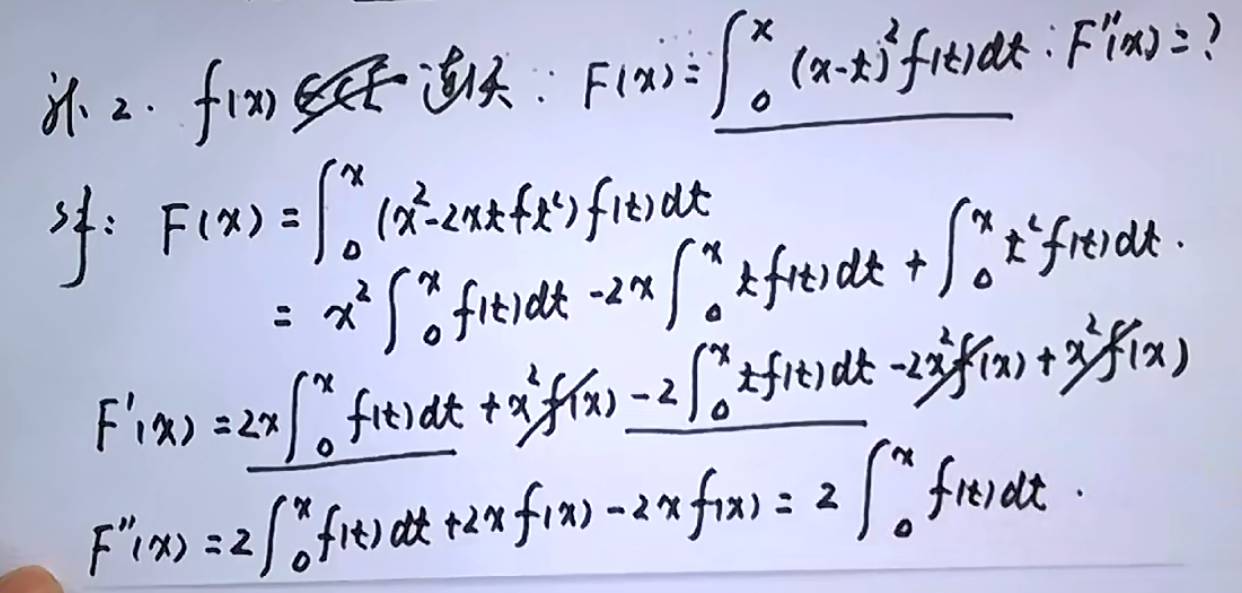 例2. f(x) 连续: F(x) = ∫₀ˣ (x-t)² f(t)dt : F''(x) = ?
解: F(x) = ∫₀ˣ (x²-2xt+t²) f(t)dt
= x² ∫₀ˣ f(t)dt -2x ∫₀ˣ t f(t)dt + ∫₀ˣ t² f(t)dt.
F'(x) = 2x ∫₀ˣ f(t)dt + x² f(x) -2 ∫₀ˣ t f(t)dt -2x² f(x) + x² f(x)
F''(x) = 2 ∫₀ˣ f(t)dt + 2x f(x) - 2x f(x) = 2 ∫₀ˣ f(t)dt.